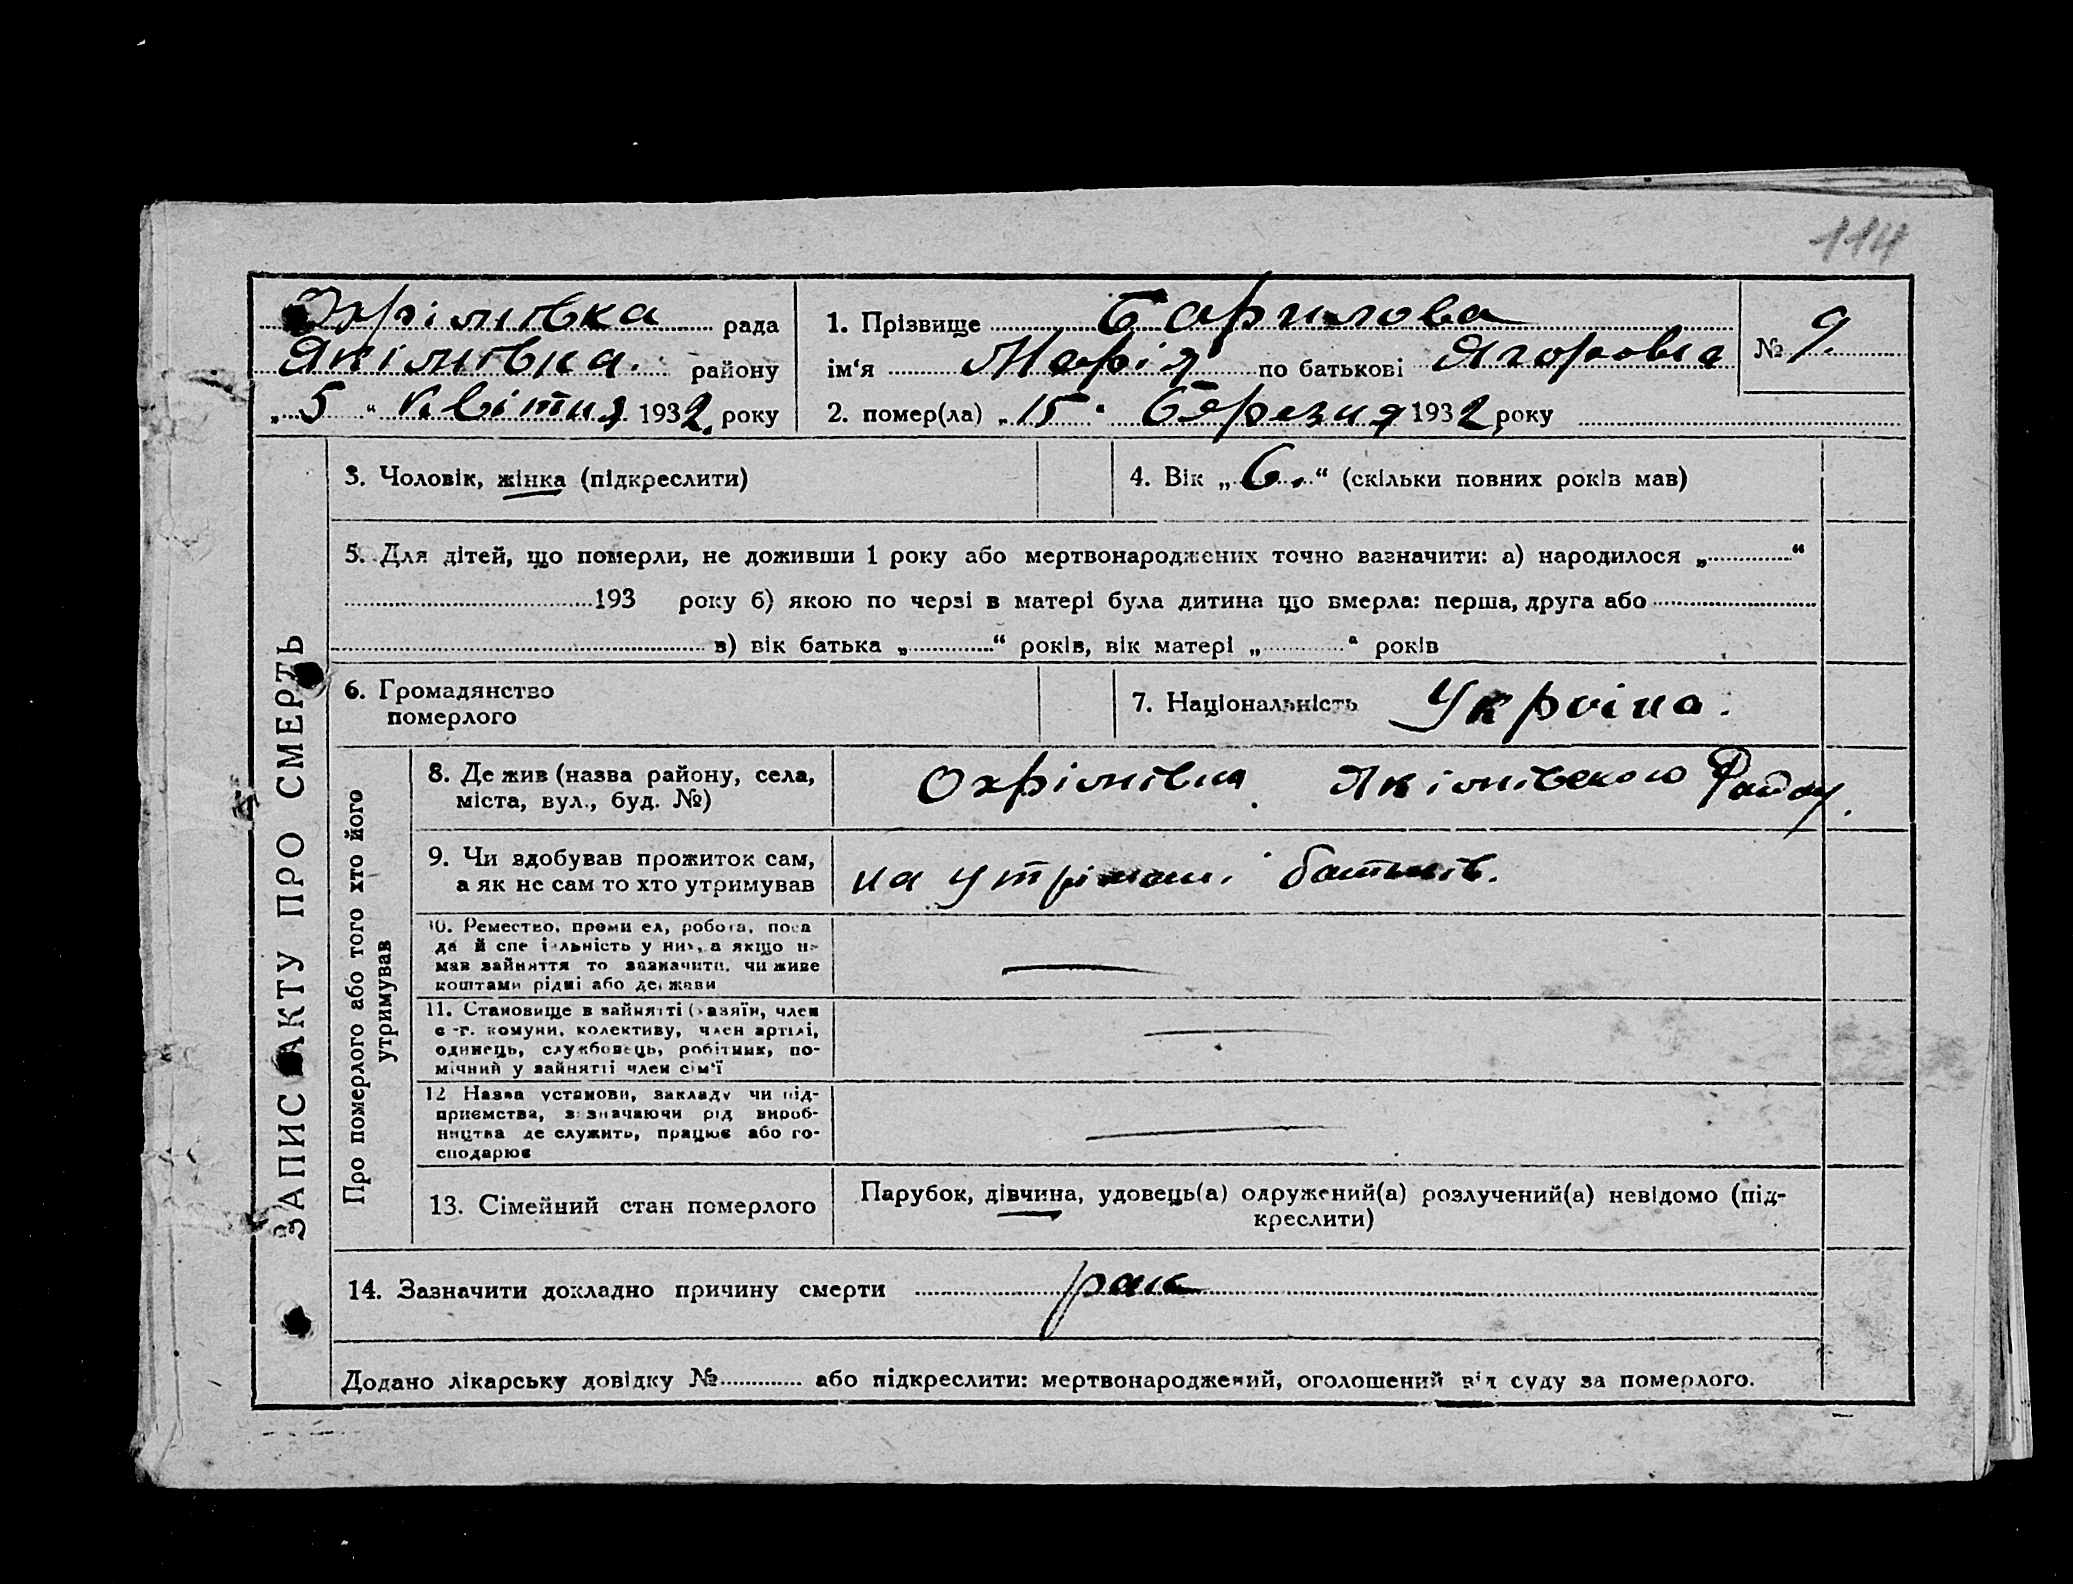 114
Охрімивка рада
Якімивка. району
„ 5 “ квітня 1932. року
1. Прізвище Барилова
ім‘я Марія по батькові Ягоровна
2. помер(ла) „ 15 “ Березня 1932 року
№ 9.
ЗАПИС АКТУ ПРО СМЕРТЬ
3. Чоловік, жінка (підкреслити)
4. Вік „ 6. “ (скільки повних років мав)
5. Для дітей, що померли, не доживши 1 року або мертвонароджених точно вазначити: а) народилося „ “
193 року б) якою по черзі в матері була дитина що вмерла: перша, друга або
в) вік батька „ “ років, вік матері „ “ років
6. Громадянство
померлого
7. Національність Україна.
Про померлого або того хто його
утримував
8. Де жив (назва району, села,
міста, вул., буд. №)
Охрімівка. Якімівского Району.
9. Чи здобував прожиток сам,
а як не сам то хто утримував
на утрімані батьків.
10. Ремество, промисел, робота, поса
да й спеціальність у них, а якщо не
мав зайняття то зазначити, чи живе
коштами рідні або держави
11. Становище в зайнятті (хазяїн, член
с-г. комуни, колективу, член артілі,
одинець, службовець, робітник, по-
мічний у зайнятті член сім‘ї
12 Назва установи, закладу чи під-
приємства, зазначаючи рід вироб-
ництва де служить, працює або го-
сподарює
13. Сімейний стан померлого
Парубок, дівчина, удовець(а) одружений(а) розлучений(а) невідомо (під-
креслити)
14. Зазначити докладно причину смерти рак
Додано лікарську довідку № або підкреслити: мертвонароджений, оголошений від суду за померлого.